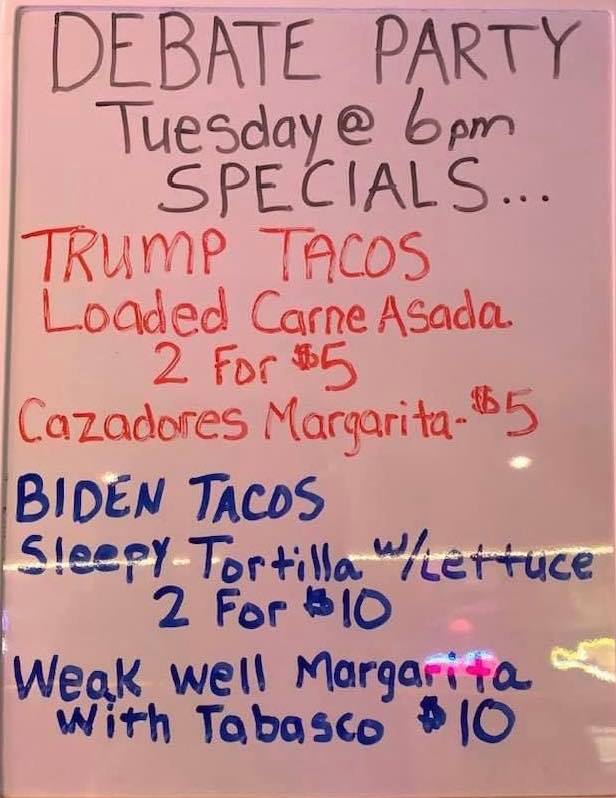 DEBATE PARTY
Tuesday @ 6pm
SPECIALS...
TRUMP TACOS
Loaded Carne Asada
2 For $5
Cazadores Margarita-$5
BIDEN TACOS
Sleepy Tortilla w/Lettuce
2 For $10
Weak well Margarita
With Tabasco $10